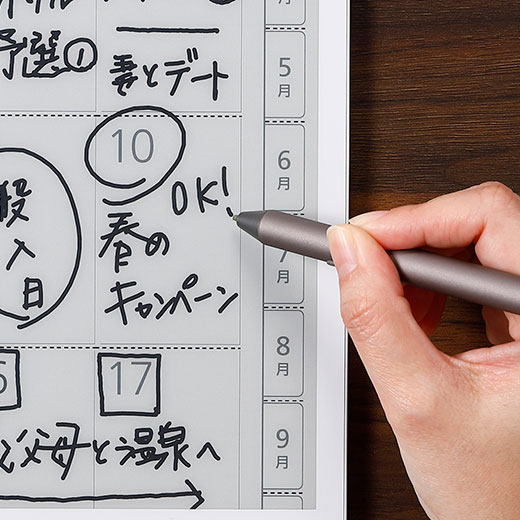 予選①
妻とデート
10
OK!
春の
キャンペーン
入
日
17
父母と温泉へ
5
月
6
月
7
月
8
月
9
月